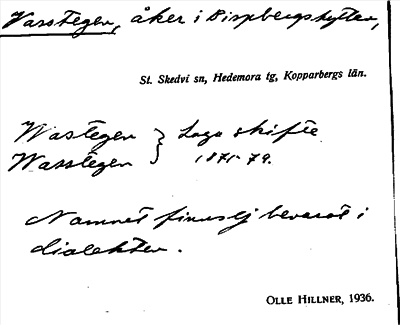 Vasstegen, åker i Bispbergshyttan,
St. Skedvi sn, Hedemora tg, Kopparbergs län.
Wastegen } Laga skifte
Wasstegen } 1871-79.
Namnet finns ej bevarat i
dialekten.
OLLE HILLNER, 1936.